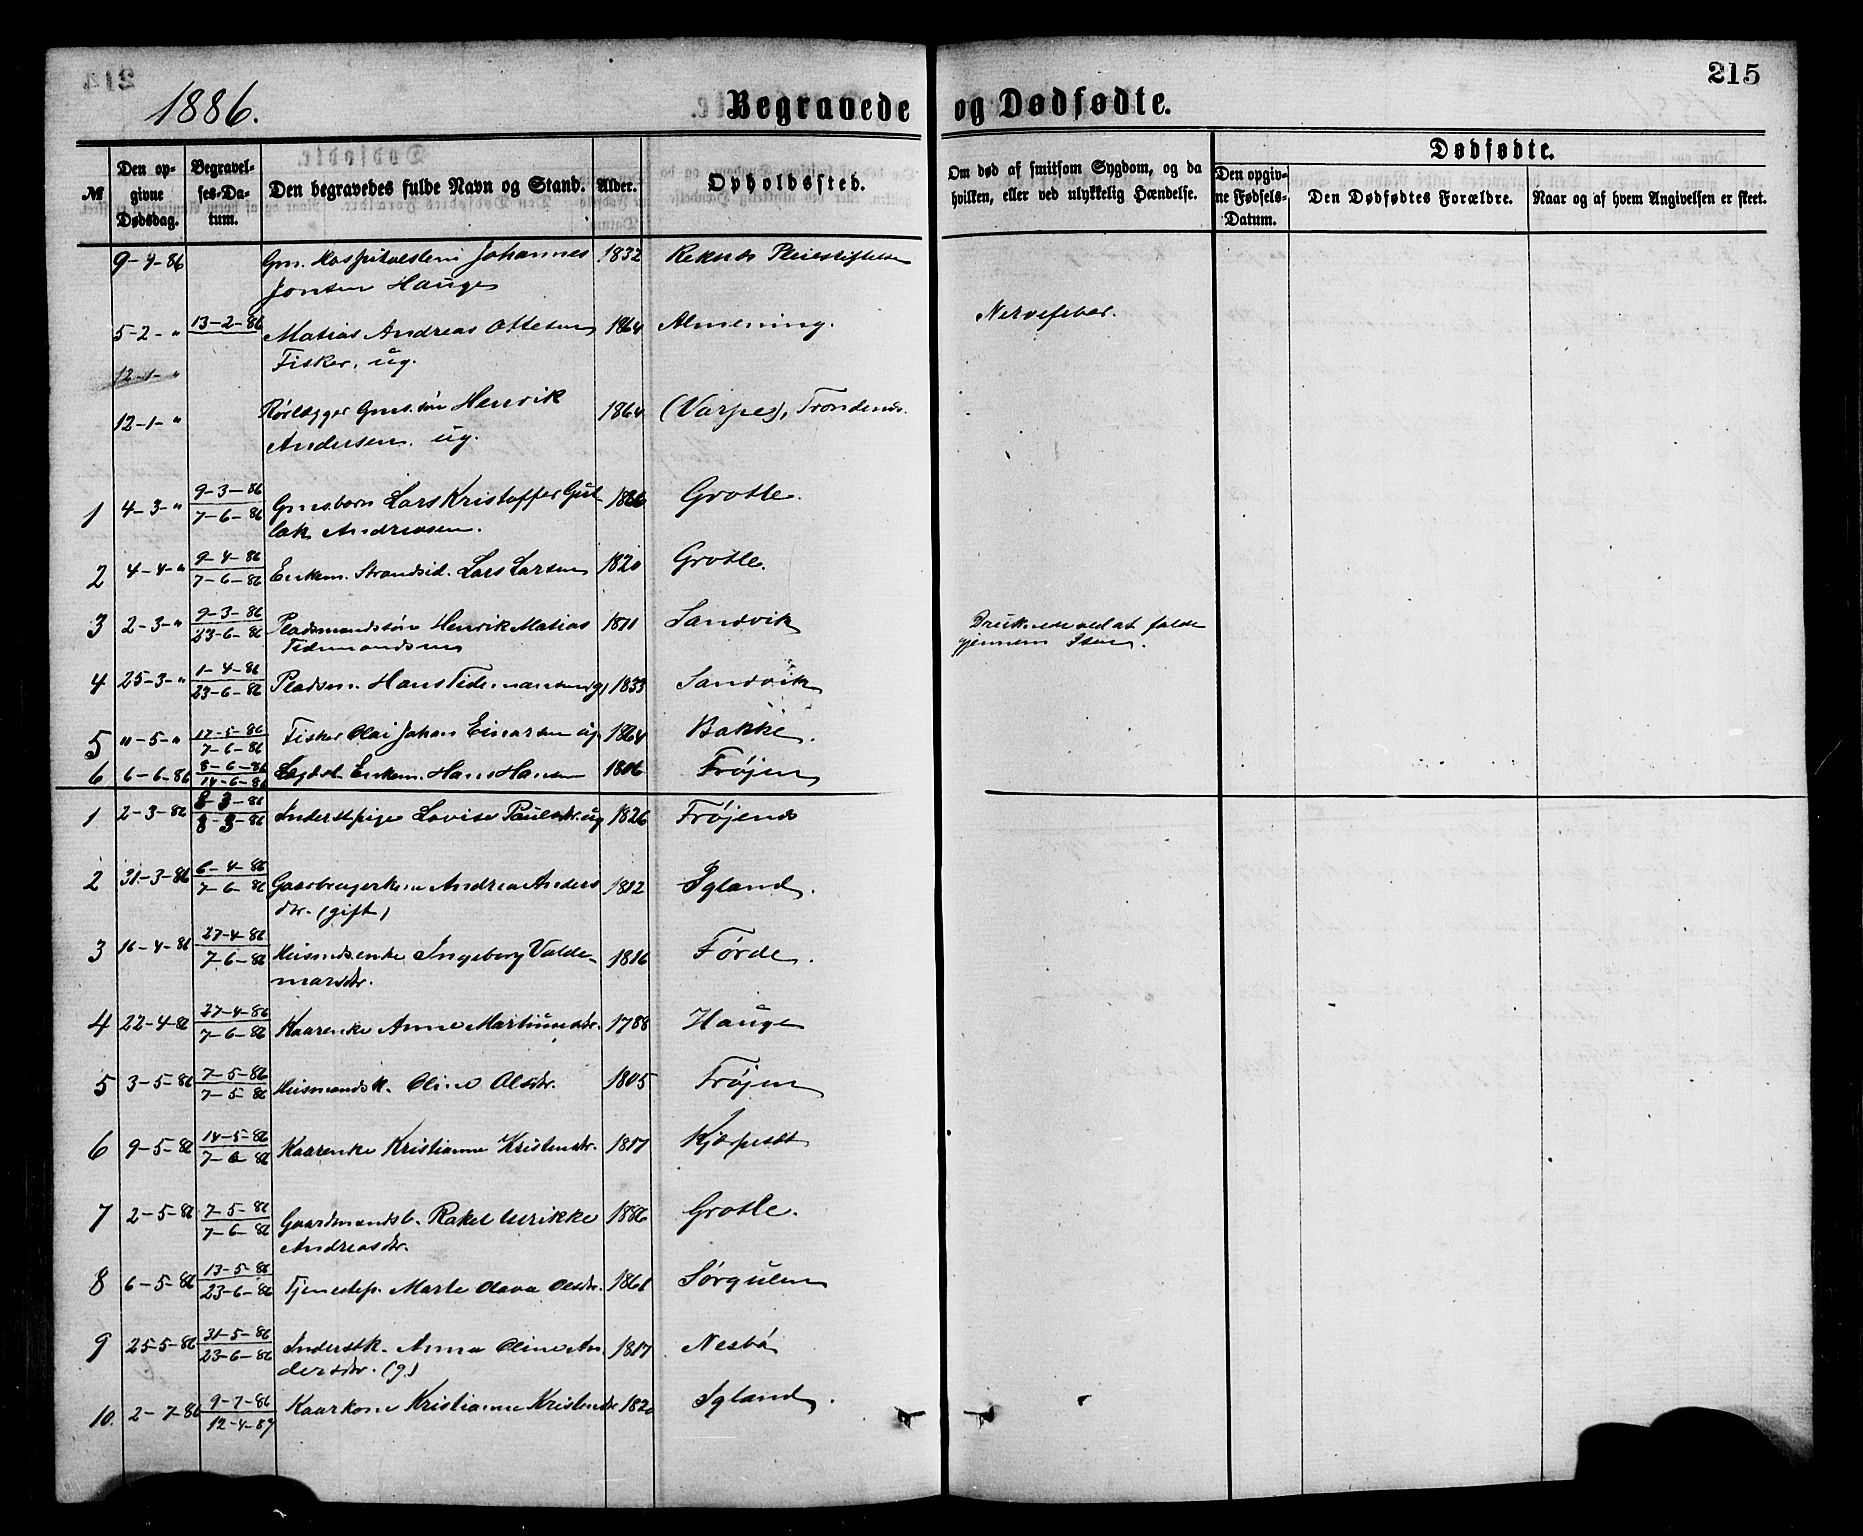 215
1886.
Begravede og Dødfødte.
№ Den opgivne Dødsdag. Begravelses-Datum. Den begravedes fulde Navn og Stand. Alder. Opholdssted. Om død af smitsom Sygdom, og da hvilken, eller ved ulykkelig Hændelse. Dødfødte.
Den opgivne Fødsels-Datum. Den Dødfødtes Forældre. Naar og af hvem Angivelsen er skeet.
9-4-86 Gm. Hospitalslem Johannes 1832 Reknes Pleiestiftelse
Jonsen Hauge
5-2-" 13-2-86 Matias Andreas Ottesen 1864 Almening. Nervefeber.
Fisker, ug.
12-1-"
12-1-" Rørlægger Gms.søn Henrik 1864 (Varpe), Trondenes.
Andersen. ug.
1 4-3-" 9-3-86 7-6-86 Gmsbarn Lars Kristoffer Gut- 1886 Grotle.
lak Andreasen.
2 4-4-" 9-4-86 7-6-86 Enkem. Strandsid. Lars Larsen 1820 Grotle.
3 2-3-" 9-3-86 23-6-86 Pladsmandssøn Henrik Matias 1871 Sandvik Druknede ved at falde
Tidemandsen gjennem Isen.
4 25-3-" 1-4-86 23-6-86 Pladsm. Hans Tidemansen g. 1833 Sandvik
5 "-5-" 17-5-86 7-6-86 Fisker Olai Johan Einarsen ug 1864 Bakke.
6 6-6-86 8-6-86 14-6-86 Lægdsl. Enkem. Hans Hansen 1806 Frøjen
1 2-3-86 8-3-86 8-3-86 Inderstpige Lovise Paulsdtr. ug 1826 Frøjen
2 31-3-86 6-4-86 7-6-86 Gaarbrugerkone Andrea Anders 1812 Igland.
dtr. (gift)
3 16-4-86 27-4-86 7-6-86 Husmdsenke Ingeborg Valde- 1816 Førde.
marsdtr.
4 22-4-86 27-4-86 7-6-86 Kaarenke Anne Martinusdtr. 1788 Hauge
5 3-5-86 7-5-86 7-5-86 Husmandsk. Oline Olsdtr. 1805 Frøjen
6 9-5-86 14-5-86 7-6-86 Kaarenke Kristianne Kristensdtr. 1817
7 2-5-86 7-5-86 7-6-86 Gaardmandsb. Rakel Ulrikke 1886 Grotle.
Andreasdtr.
8 6-5-86 13-5-86 23-6-86 Tjenestep. Marte Olava Olsdtr. 1861 Sørgulen
9 25-5-86 31-5-86 23-6-86 Inderstk. Anna Oline An- 1817 Nesbø
dersdtr. (g.)
10. 2-7-86 9-7-86 12-4-87 Kaarkone Kristianne Kristensdtr 1820 Igland.